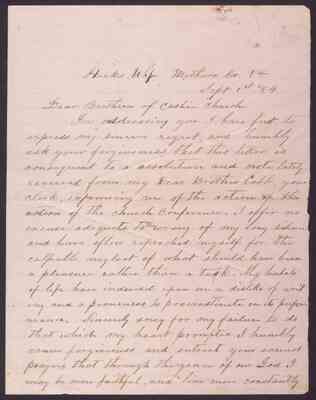 Hicks Wf. Mathews Co. Va
Sept 1st '84
Dear Brethren of Cashie Church
In addressing you I have first to
express my sincere regret, and humbly
ask your forgiveness that this letter is
consequent to a resolution and note lately
received from my Dear Brother Cobb, your
clerk, informing me of the action of the
action of the Church Conference. I offer no
excuse adequate to of my long silence
and have often reproached myself for the
culpable neglect of what should have been
a pleasure rather than a task. My habits
of life have induced upon me a dislike of writ
ing and a proneness to procrastinate in its perfor
mance. Sincerely sorry for my failure to do
that which my heart prompts I humbly
crave forgiveness and entreat your earnest
prayers that through the grace of our God I
may be more faithful, and live more constantly